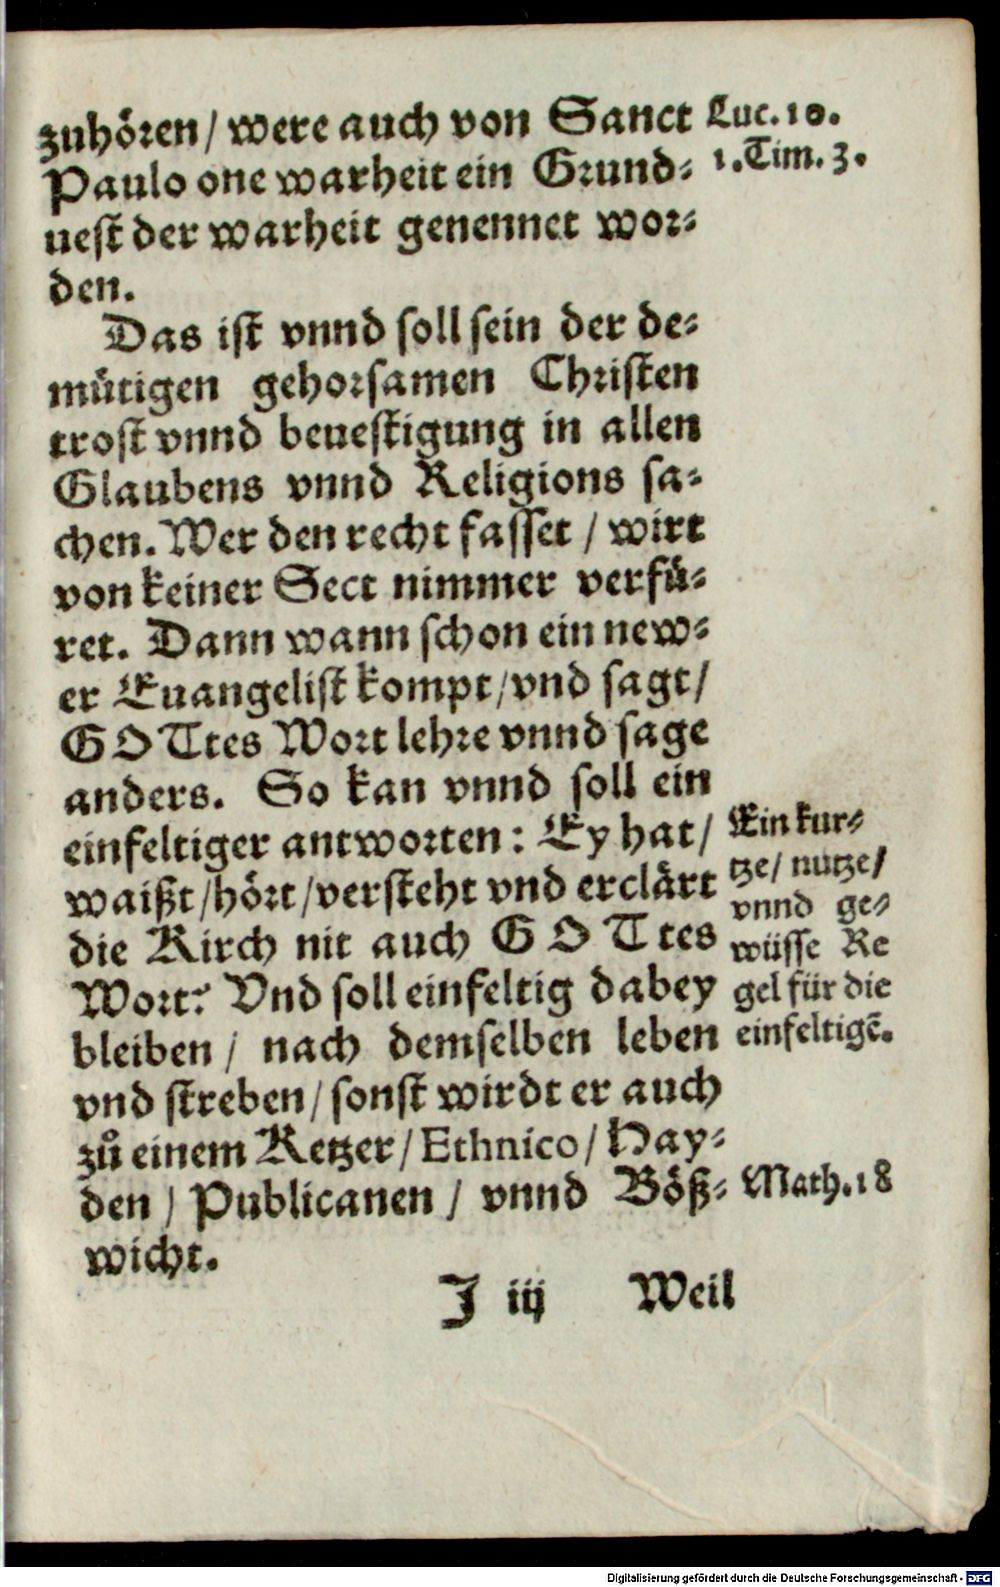 zuhören / were auch von Sanct
Paulo one warheit ein Grund-
uest der warheit genennet wor-
den.
Luc. 10.
1. Tim. 3.
Das ist vnnd soll sein der de-
mütigen gehorsamen Christen
trost vnnd beuestigung in allen
Glaubens vnnd Religions sa-
chen. Wer den recht fasset / wirt
von keiner Sect nimmer verfü-
ret. Dann wann schon ein new-
er Euangelist kompt / vnd sagt /
GOTtes Wort lehre vnnd sage
anders. So kan vnnd soll ein
einfeltiger antworten : Ey hat /
waißt / hört / versteht vnd erclärt
die Kirch nit auch GOTtes
Wort? Vnd soll einfeltig dabey
bleiben / nach demselben leben
vnd streben / sonst wirdt er auch
zů einem Ketzer / Ethnico / Hay-
den / Publicanen / vnnd Böß-
wicht.
Ein kur-
tze / nutze /
vnnd ge-
wüsse Re
gel für die
einfeltigē.
Math. 18
J iij Weil
Digitalisierung gefördert durch die Deutsche Forschungsgemeinschaft - DFG